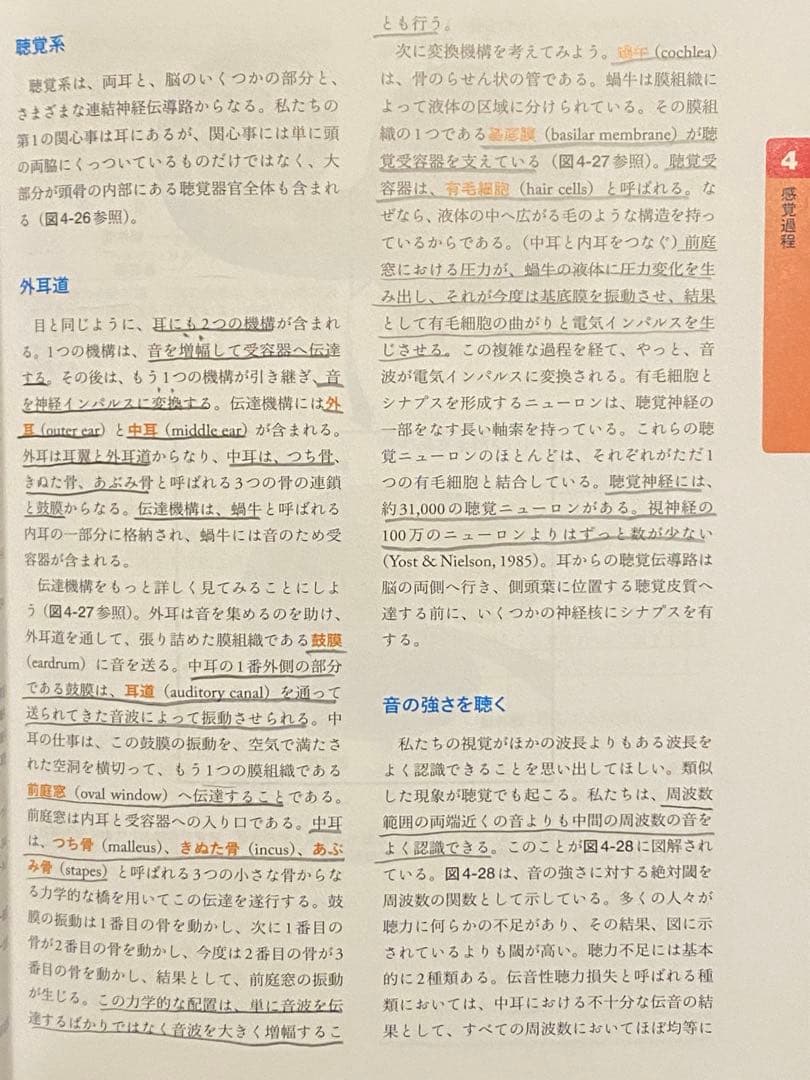 聴覚系
聴覚系は、両耳と、脳のいくつかの部分と、
さまざまな連結神経伝導路からなる。私たちの
第1の関心事は耳にあるが、関心事には単に頭
の両脇にくっついているものだけではなく、大
部分が頭骨の内部にある聴覚器官全体も含まれ
る（図4-26参照）。
外耳道
目と同じように、耳にも2つの機構が含まれ
る。1つの機構は、音を増幅して受容器へ伝達
する。その後は、もう1つの機構が引き継ぎ、音
を神経インパルスに変換する。伝達機構には外
耳（outer ear）と中耳（middle ear）が含まれる。
外耳は耳翼と外耳道からなり、中耳は、つち骨、
きぬた骨、あぶみ骨と呼ばれる3つの骨の連鎖
と鼓膜からなる。伝達機構は、蝸牛と呼ばれる
内耳の一部分に格納され、蝸牛には音のため受
容器が含まれる。
伝達機構をもっと詳しく見てみることにしよ
う（図4-27参照）。外耳は音を集めるのを助け、
外耳道を通して、張り詰めた膜組織である鼓膜
（eardrum）に音を送る。中耳の1番外側の部分
である鼓膜は、耳道（auditory canal）を通って
送られてきた音波によって振動させられる。中
耳の仕事は、この鼓膜の振動を、空気で満たさ
れた空洞を横切って、もう1つの膜組織である
前庭窓（oval window）へ伝達することである。
前庭窓は内耳と受容器への入り口である。中耳
は、つち骨（malleus）、きぬた骨（incus）、あぶ
み骨（stapes）と呼ばれる3つの小さな骨からな
る力学的な橋を用いてこの伝達を遂行する。鼓
膜の振動は1番目の骨を動かし、次に1番目の
骨が2番目の骨を動かし、今度は2番目の骨が3
番目の骨を動かし、結果として、前庭窓の振動
が生じる。この力学的な配置は、単に音波を伝
達するばかりではなく音波を大きく増幅するこ
とも行う。
次に変換機構を考えてみよう。蝸牛（cochlea）
は、骨のらせん状の管である。蝸牛は膜組織に
よって液体の区域に分けられている。その膜組
織の1つである基底膜（basilar membrane）が聴
覚受容器を支えている（図4-27参照）。聴覚受
容器は、有毛細胞（hair cells）と呼ばれる。な
ぜなら、液体の中へ広がる毛のような構造を持っ
ているからである。（中耳と内耳をつなぐ）前庭
窓における圧力が、蝸牛の液体に圧力変化を生
み出し、それが今度は基底膜を振動させ、結果
として有毛細胞の曲がりと電気インパルスを生
じさせる。この複雑な過程を経て、やっと、音
波が電気インパルスに変換される。有毛細胞と
シナプスを形成するニューロンは、聴覚神経の
一部をなす長い軸索を持っている。これらの聴
覚ニューロンのほとんどは、それぞれがただ1
つの有毛細胞と結合している。聴覚神経には、
約31,000の聴覚ニューロンがある。視神経の
100万のニューロンよりはずっと数が少ない
（Yost & Nielson, 1985）。耳からの聴覚伝導路は
脳の両側へ行き、側頭葉に位置する聴覚皮質へ
達する前に、いくつかの神経核にシナプスを有
する。
音の強さを聴く
私たちの視覚がほかの波長よりもある波長を
よく認識できることを思い出してほしい。類似
した現象が聴覚でも起こる。私たちは、周波数
範囲の両端近くの音よりも中間の周波数の音を
よく認識できる。このことが図4-28に図解され
ている。図4-28は、音の強さに対する絶対閾を
周波数の関数として示している。多くの人々が
聴力に何らかの不足があり、その結果、図に示
されているよりも閾が高い。聴力不足には基本
的に2種類ある。伝音性聴力損失と呼ばれる種
類においては、中耳における不十分な伝音の結
果として、すべての周波数においてほぼ均等に
4
感覚過程